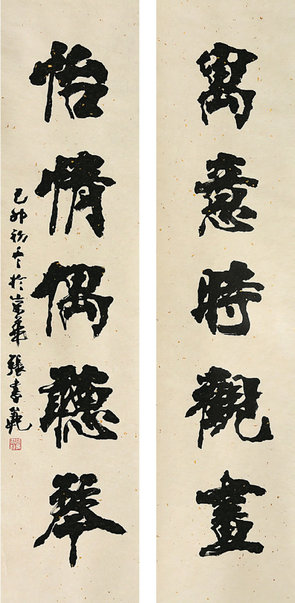 寓意時觀畫
怡情偶聽琴
己卯初冬於京華張書範